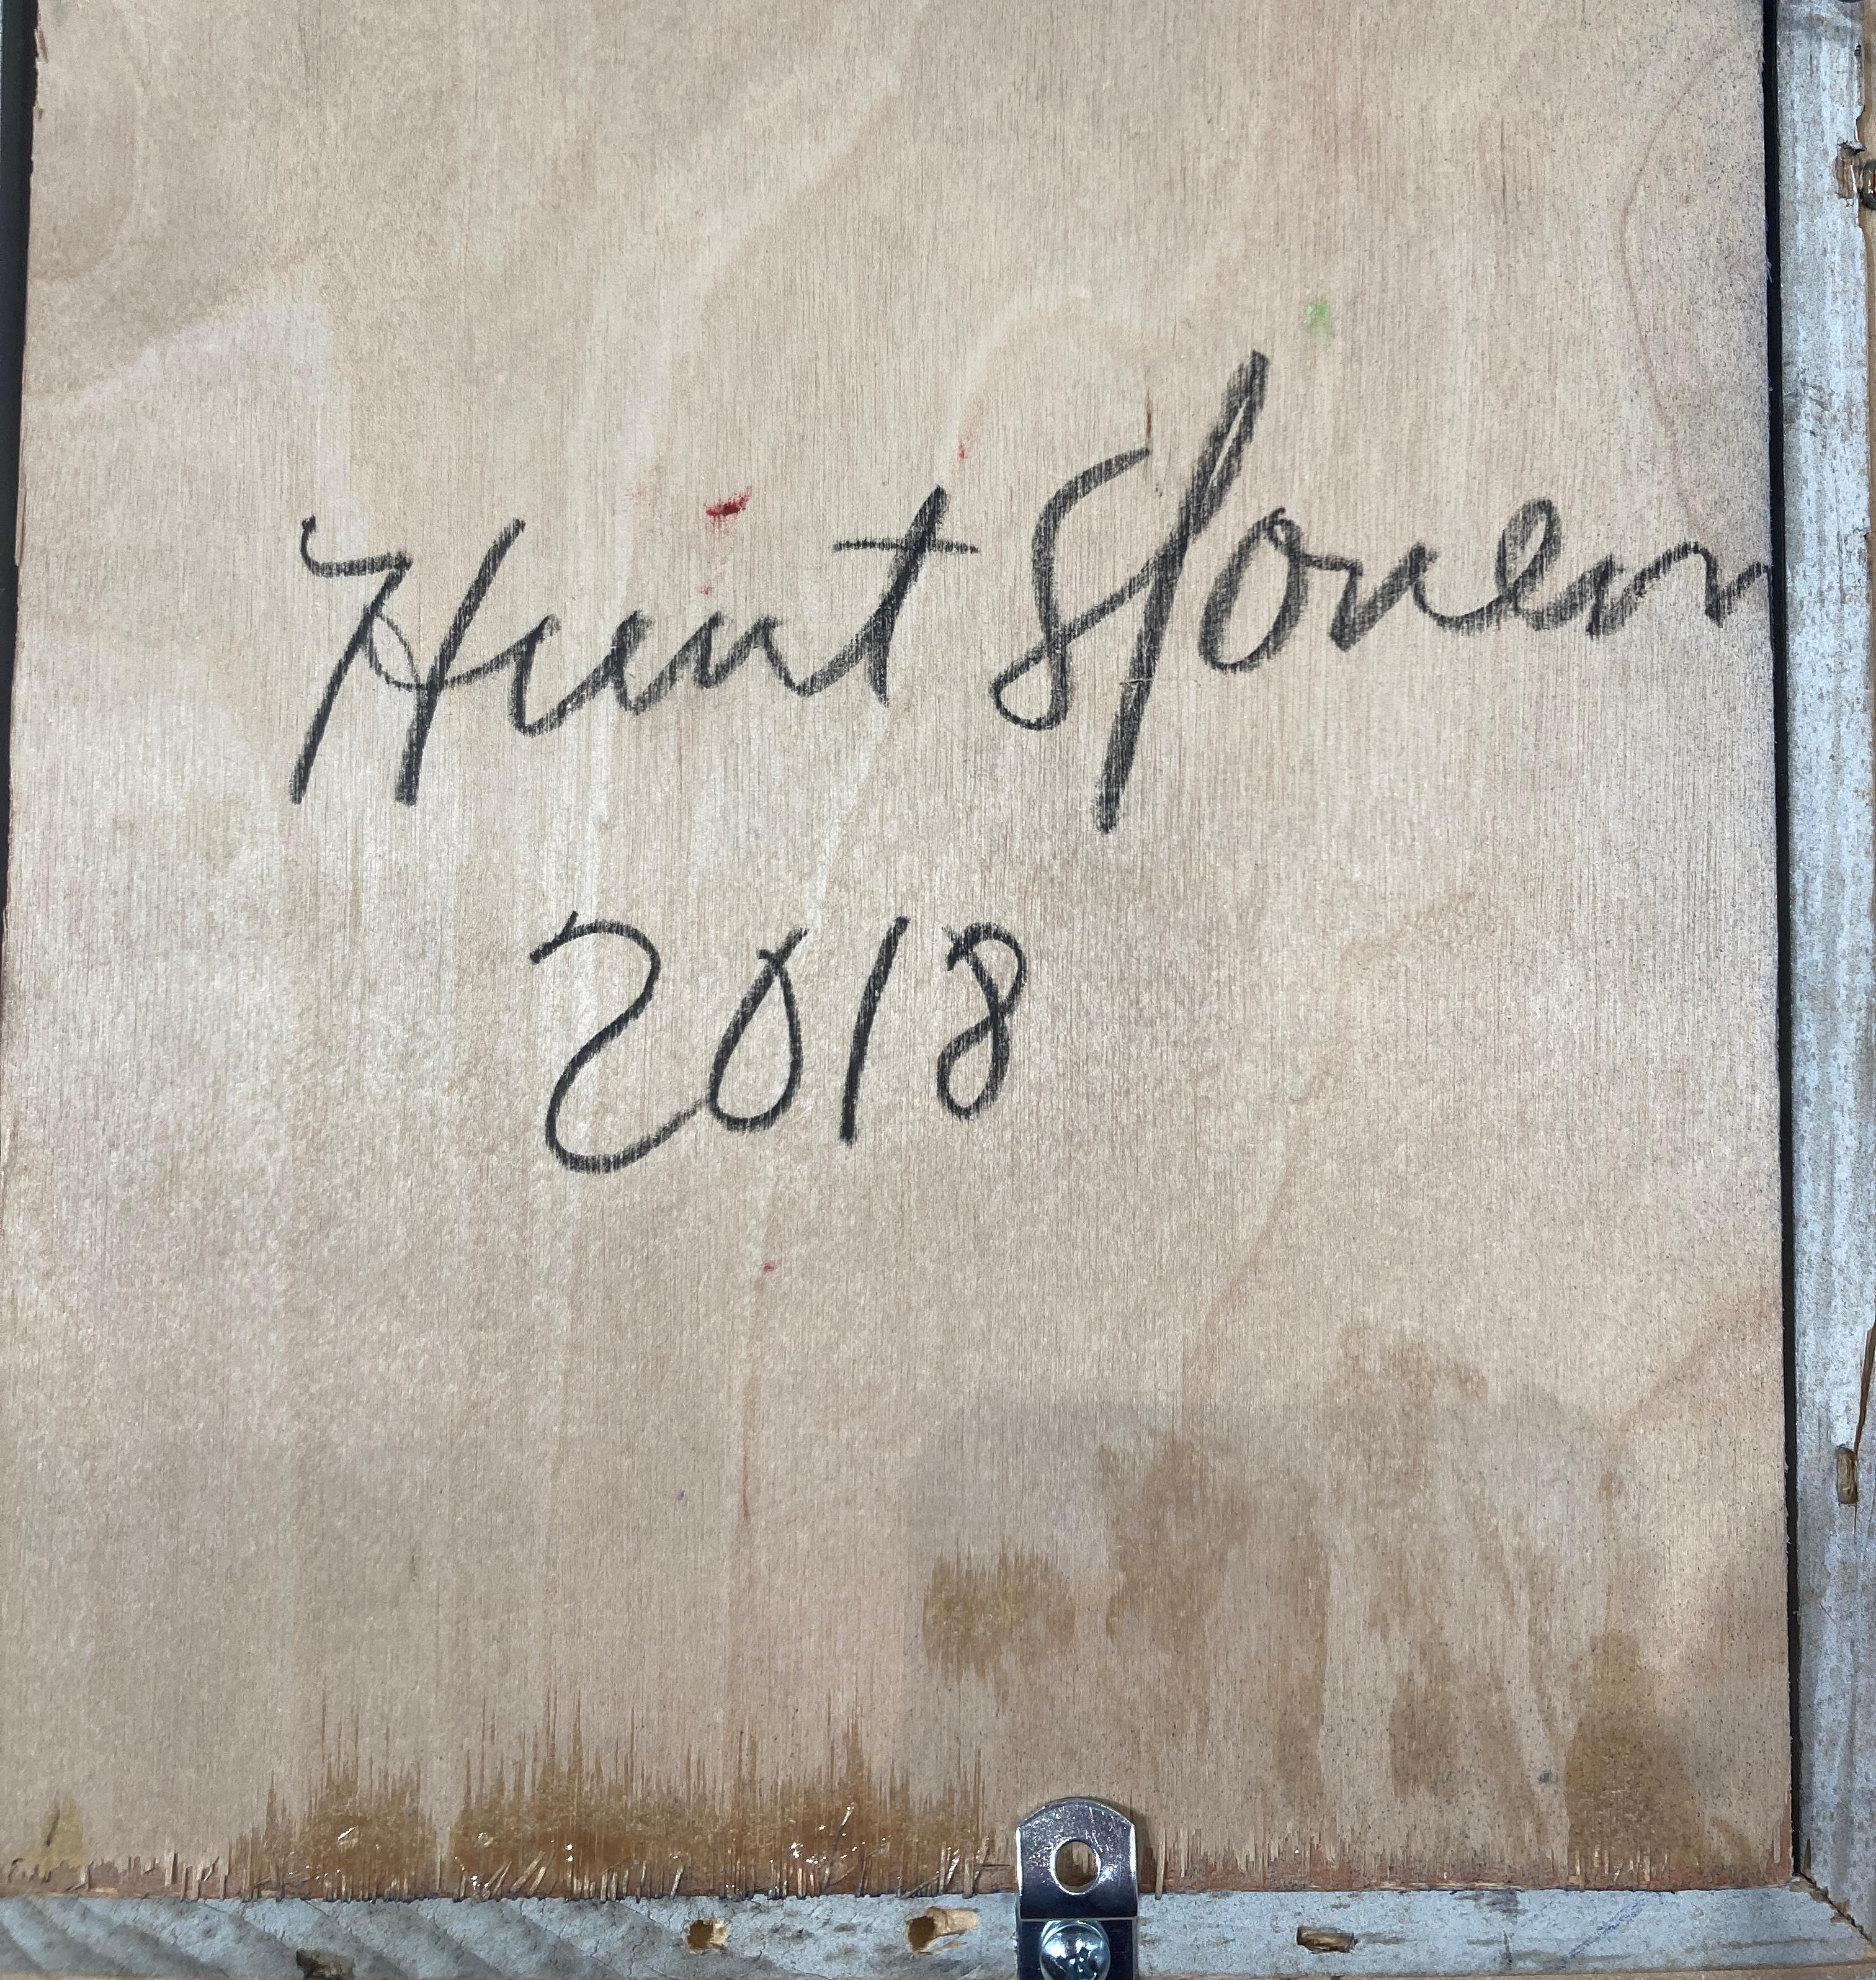 Hunt Slonem
2018